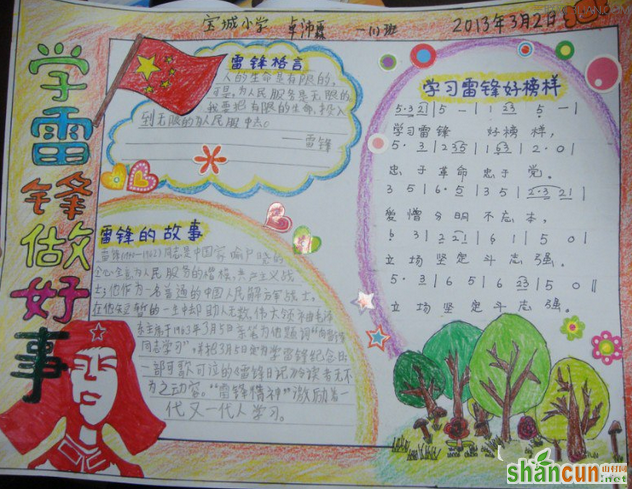 宝城小学 卓沛霖 一(1)班 2013年3月2日
学雷锋做好事
雷锋格言
人的生命是有限的，
可是，为人民服务是无限的
我要把有限的生命，投入
到无限的为人民服中去。
——雷锋
学习雷锋好榜样
5·3 2 | 5 — | 1 6 3 5 — |
学习雷锋 好榜样，
忠于革命 忠于党。
爱憎分明不忘本，
立场坚定斗志强。
立场坚定斗志强。
雷锋的故事
雷锋(1940-1962)同志是中国家喻户晓的
全心全意为人民服务的楷模，共产主义战
士；他作为一名普通的中国人民解放军战士，
在他生短暂的一生中却助人无数，伟大领袖毛泽
东主席于1963年3月5日亲笔为他题词“向雷锋
同志学习”，并把3月5日定为学雷锋纪念日
一部可歌可泣的《雷锋日记》令读者无不
为之动容。“雷锋精神”激励着一
代又一代人学习。
shancun
山村网
.net